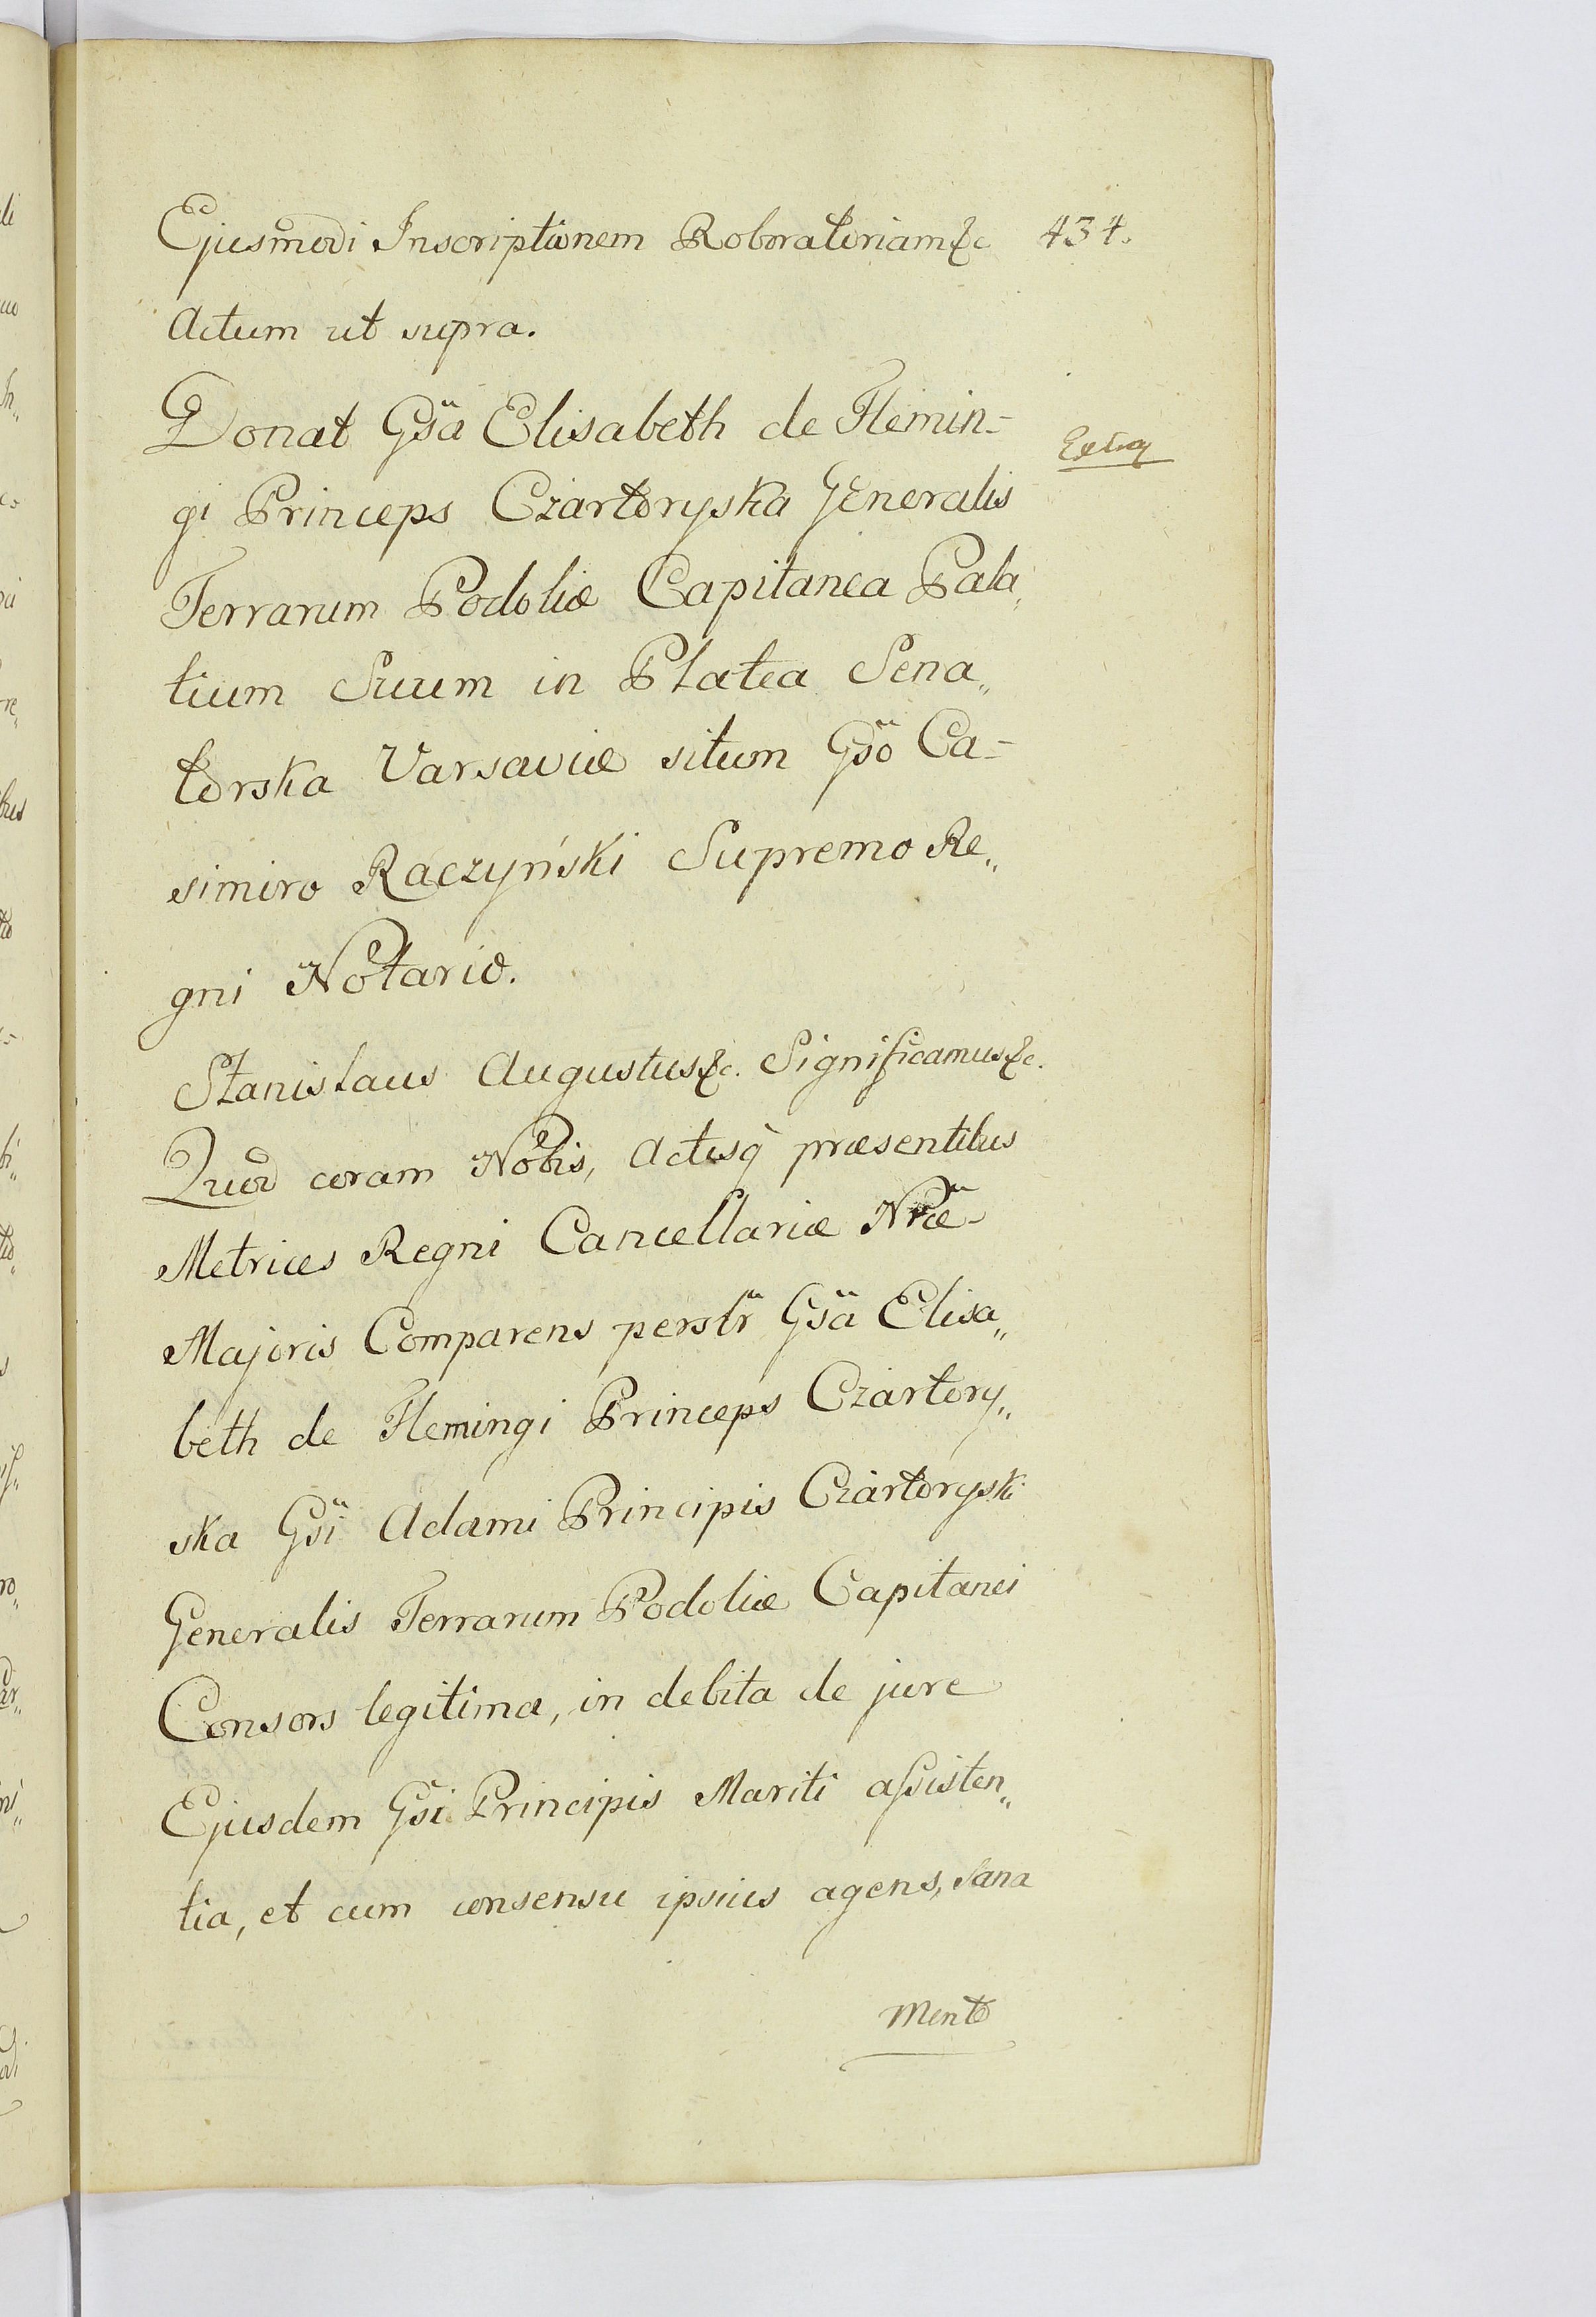 Ejusmodi Inscriptionem Roboratoriam &c 434.
Actum ut supra.
Donat Gsa Elisabeth de Flemin-
gi Princeps Czartoryska Generalis
Terrarum Podoliæ Capitanea Pala„
tium Suum in Platea Sena„
torska Varsaviæ situm Gso Ca-
simiro Raczyński Supremo Re„
gni Notario.
Stanislaus Augustus &c. Significamus &c.
Quod coram Nobis, Actisq præsentibus
Metrices Regni Cancellariæ Nræ
Majoris Comparens persłr Gsa Elisa„
beth de Flemingi Princeps Czartory„
ska Gsi Adami Principis Czartoryski
Generalis Terrarum Podoliæ Capitanei
Consors legitima, in debita de jure
Ejusdem Gsi Principis Mariti assisten„
tia, et cum consensu ipsius agens, sana
Mente